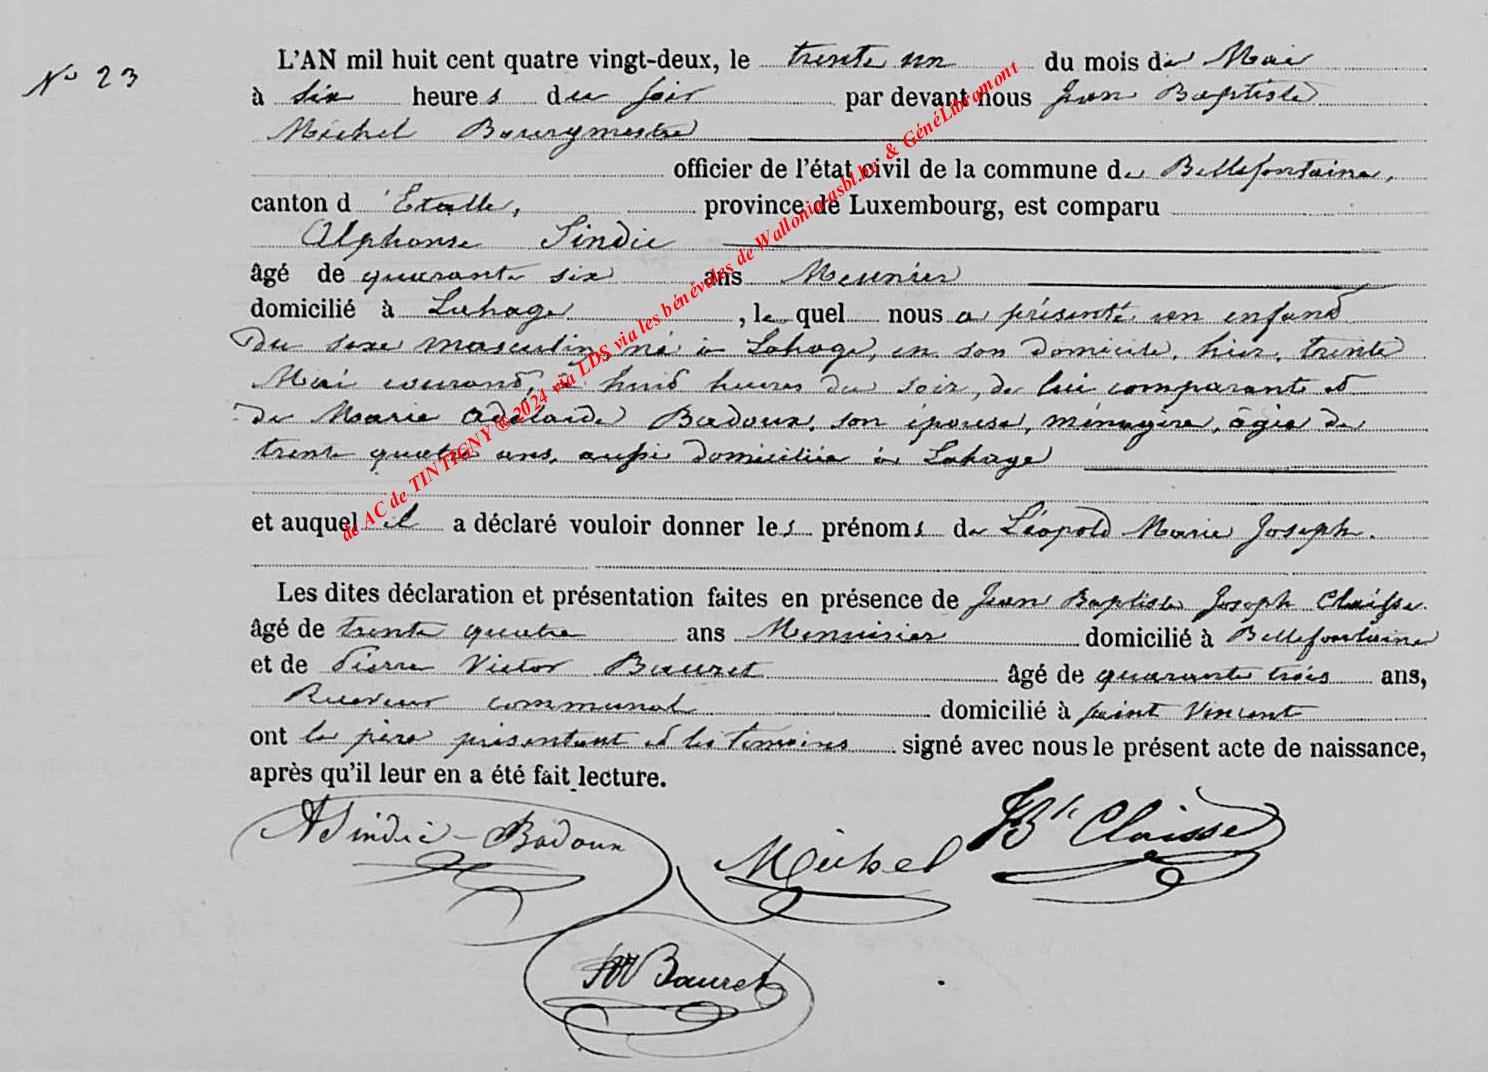 N° 23
L'AN mil huit cent quatre vingt-deux, le trente un du mois de Mai
à six heures du soir par devant nous Jean Baptiste
Michel Bourgmestre
officier de l'état civil de la commune de Bellefontaine,
canton d'Etalle, province de Luxembourg, est comparu
Alphonse Sindic
âgé de quarante six ans Meunier
domicilié à Lahage, lequel nous a présenté un enfant
du sexe masculin, né à Lahage, en son domicile, hier, trente
Mai courant, à huit heures du soir, de lui comparant et
de Marie Adélaïde Badoux, son épouse, ménagère, âgée de
trente quatre ans, aussi domiciliée à Lahage
et auquel il a déclaré vouloir donner les prénoms de Léopold Marie Joseph.
Les dites déclaration et présentation faites en présence de Jean Baptiste Joseph Claisse
âgé de trente quatre ans Menuisier domicilié à Bellefontaine
et de Pierre Victor Bauret âgé de quarante trois ans,
Receveur communal domicilié à saint Vincent
ont le père présentant et les témoins signé avec nous le présent acte de naissance,
après qu'il leur en a été fait lecture.
ASindic-Badoux
Michel
JBte Claisse
Bauret
de AC de TINTIGNY ® 2024 via LDS via les bénévoles de Wallonia-asbl.be & GénéLibramont